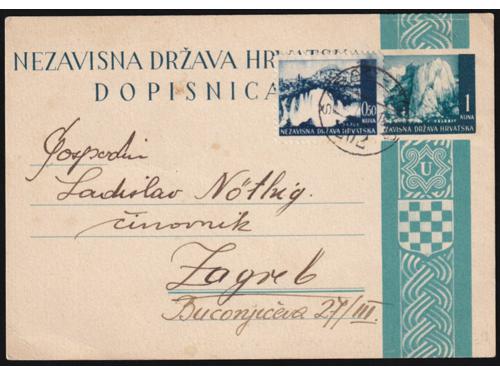 NEZAVISNA DRŽAVA HRVATSKA
DOPISNICA
0.50
KUNA
NEZAVISNA DRŽAVA HRVATSKA
1
KUNA
NEZAVISNA DRŽAVA HRVATSKA
U
Gospodin
Ladislav Nöthig.
činovnik
Zagreb
Buconjićeva 27/III.